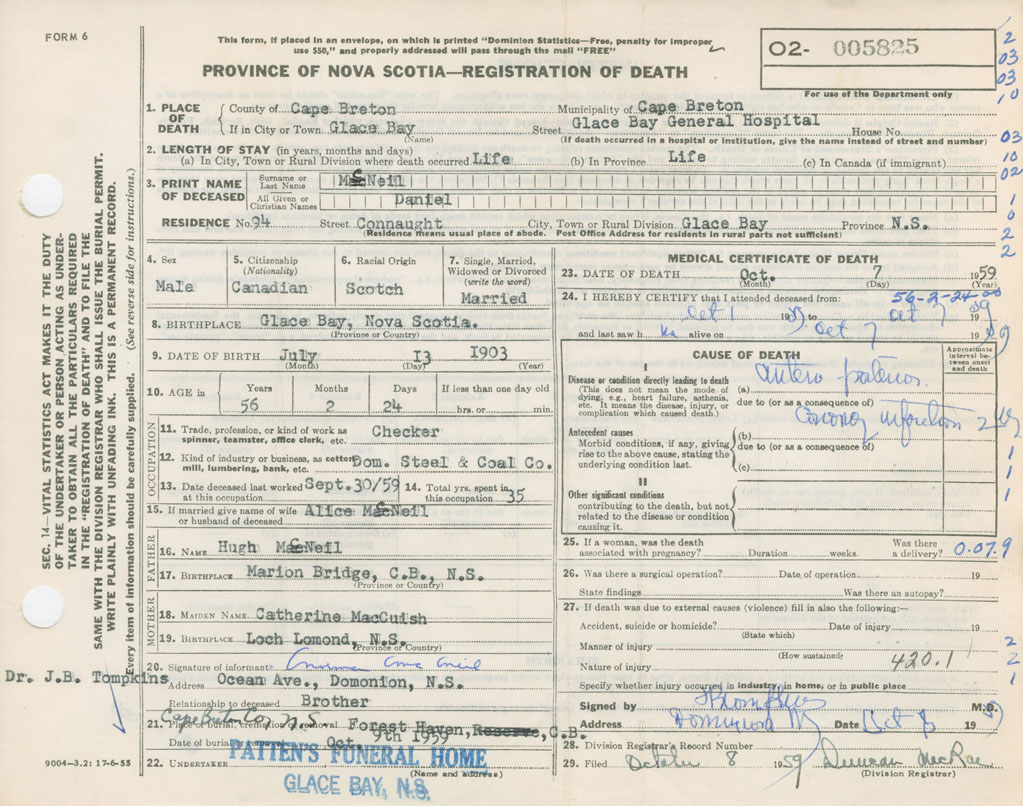 FORM 6
This form, if placed in an envelope, on which is printed "Dominion Statistics—Free, penalty for improper
use $50," and properly addressed will pass through the mail "FREE"
PROVINCE OF NOVA SCOTIA—REGISTRATION OF DEATH
02- 005825
For use of the Department only
2
03
03
10
03
10
02
1
0
2
2
SEC. 14—VITAL STATISTICS ACT MAKES IT THE DUTY
OF THE UNDERTAKER OR PERSON ACTING AS UNDER-
TAKER TO OBTAIN ALL THE PARTICULARS REQUIRED
IN THE "REGISTRATION OF DEATH" AND TO FILE THE
SAME WITH THE DIVISION REGISTRAR WHO SHALL ISSUE THE BURIAL PERMIT.
WRITE PLAINLY WITH UNFADING INK. THIS IS A PERMANENT RECORD.
Every item of information should be carefully supplied. (See reverse side for instructions.)
1. PLACE OF DEATH { County of Cape Breton Municipality of Cape Breton
If in City or Town Glace Bay Street Glace Bay General Hospital House No.
(Name) (If death occurred in a hospital or institution, give the name instead of street and number)
2. LENGTH OF STAY (in years, months and days)
(a) In City, Town or Rural Division where death occurred Life (b) In Province Life (c) In Canada (if immigrant)
3. PRINT NAME OF DECEASED { Surname or Last Name McNeil
All Given or Christian Names Daniel
RESIDENCE No. 94 Street Connaught City, Town or Rural Division Glace Bay Province N.S.
(Residence means usual place of abode. Post Office Address for residents in rural parts not sufficient)
4. Sex
Male
5. Citizenship
(Nationality)
Canadian
6. Racial Origin
Scotch
7. Single, Married,
Widowed or Divorced
(write the word)
Married
8. BIRTHPLACE Glace Bay, Nova Scotia.
(Province or Country)
9. DATE OF BIRTH July 13 1903
(Month) (Day) (Year)
10. AGE in Years Months Days If less than one day old
56 2 24 hrs. or min.
OCCUPATION
11. Trade, profession, or kind of work as
spinner, teamster, office clerk, etc. Checker
12. Kind of industry or business, as cotton
mill, lumbering, bank, etc. Dom. Steel & Coal Co.
13. Date deceased last worked
at this occupation Sept.30/59
14. Total yrs. spent in
this occupation 35
15. If married give name of wife
or husband of deceased Alice McNeil
FATHER
16. NAME Hugh McNeil
17. BIRTHPLACE Marion Bridge, C.B., N.S.
(Province or Country)
MOTHER
18. MAIDEN NAME Catherine MacCuish
19. BIRTHPLACE Loch Lomond, N.S.
(Province or Country)
20. Signature of informant
Dr. J.B. Tompkins
Address Ocean Ave., Domonion, N.S.
Relationship to deceased Brother
21. Place of burial, cremation or removal Forest Haven, Reserve, C.B.
Cape Breton Co. N.S.
Date of burial Oct. 9th 1959
22. UNDERTAKER PATTEN'S FUNERAL HOME
(Name and address)
GLACE BAY, N.S.
9004—3.2: 17-6-55
MEDICAL CERTIFICATE OF DEATH
23. DATE OF DEATH Oct. 7 1959
(Month) (Day) (Year)
56-2-24-00
24. I HEREBY CERTIFY that I attended deceased from:
Oct 1 19 59 to Oct 7 19 59
and last saw h alive on Oct 7 19 59
CAUSE OF DEATH
Approximate
interval be-
tween onset
and death
I
Disease or condition directly leading to death
(This does not mean the mode of
dying, e.g., heart failure, asthenia,
etc. It means the disease, injury, or
complication which caused death.)
(a)
due to (or as a consequence of)
Antecedent causes
Morbid conditions, if any, giving
rise to the above cause, stating the
underlying condition last.
(b)
due to (or as a consequence of)
(c)
II
Other significant conditions
contributing to the death, but not
related to the disease or condition
causing it.
1
1
1
25. If a woman, was the death Was there
associated with pregnancy? Duration weeks. a delivery? 0.07.9
26. Was there a surgical operation? Date of operation 19
State findings Was there an autopsy?
27. If death was due to external causes (violence) fill in also the following:—
Accident, suicide or homicide? Date of injury 19
(State which)
Manner of injury 2
(How sustained)
420.1
Nature of injury 2
Specify whether injury occurred in industry, in home, or in public place 1
Signed by M.D.
Address Dominion NS Date Oct 8 19 59
28. Division Registrar's Record Number
29. Filed October 8 1959 Duncan MacRae
(Division Registrar)